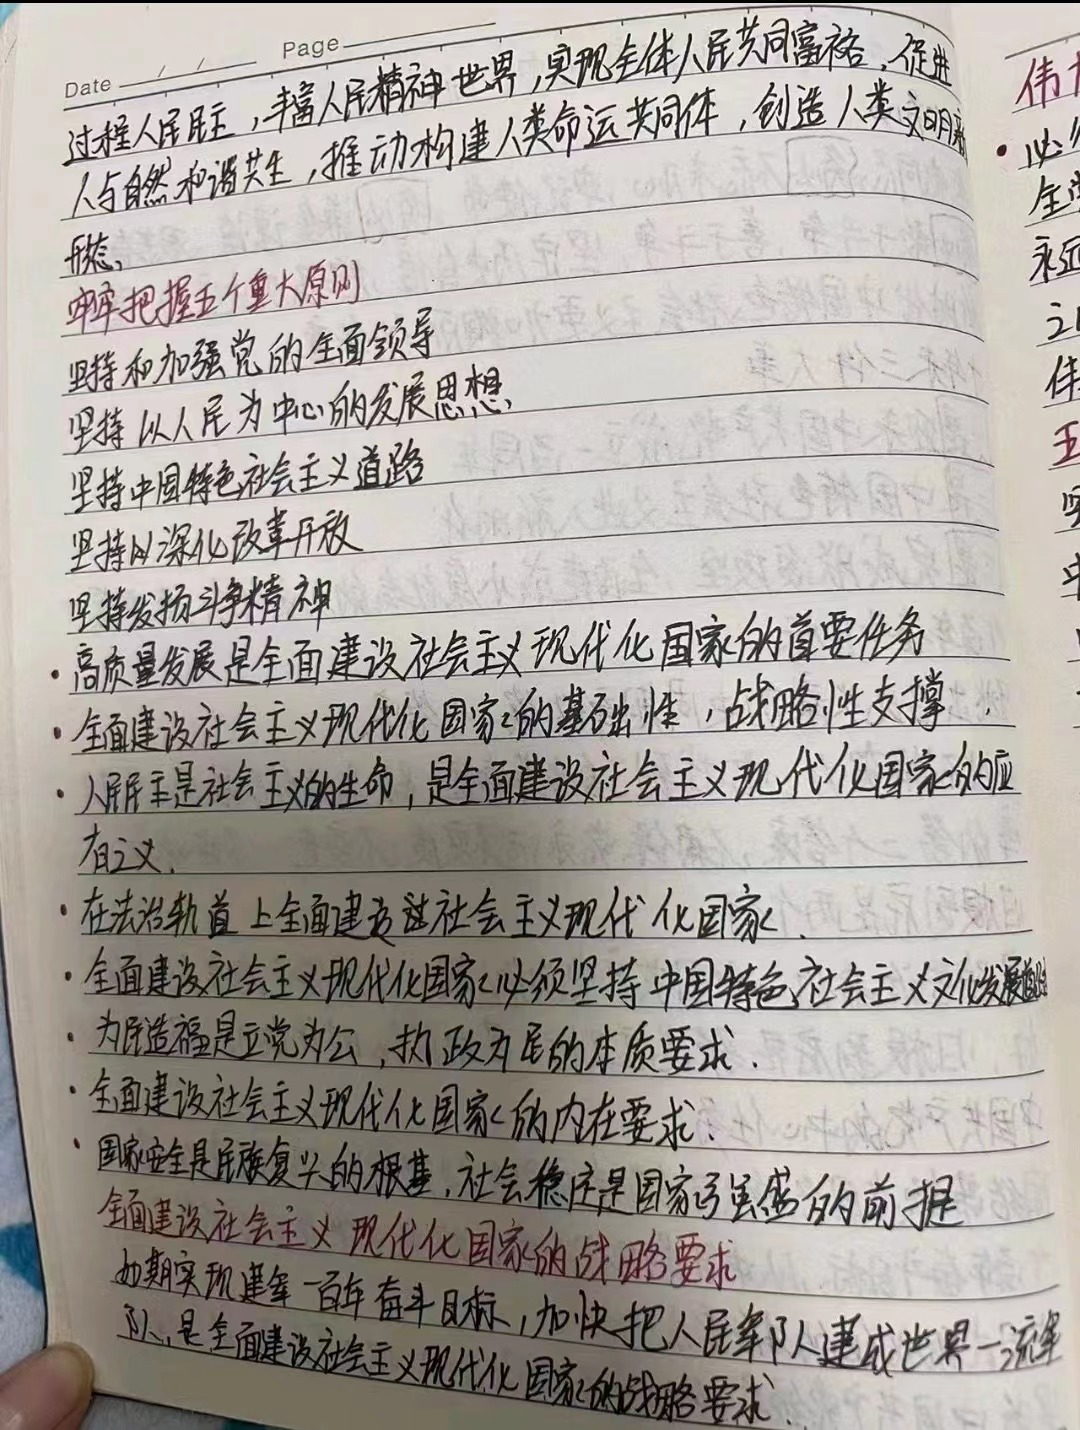 Date / / Page
过程人民民主，丰富人民精神世界，实现全体人民共同富裕，促进
人与自然和谐共生，推动构建人类命运共同体，创造人类文明新
形态，
牢牢把握五个重大原则
坚持和加强党的全面领导
坚持以人民为中心的发展思想，
坚持中国特色社会主义道路
坚持以深化改革开放
坚持发扬斗争精神
·高质量发展是全面建设社会主义现代化国家的首要任务
·全面建设社会主义现代化国家的基础性，战略性支撑．
·人民民主是社会主义的生命，是全面建设社会主义现代化国家的应
有之义．
·在法治轨道上全面建设社会主义现代化国家．
·全面建设社会主义现代化国家必须坚持中国特色社会主义文化发展道路
·为民造福是立党为公，执政为民的本质要求．
·全面建设社会主义现代化国家的内在要求．
·国家安全是民族复兴的根基，社会稳定是国家强盛的前提
全面建设社会主义现代化国家的战略要求
如期实现建军一百年奋斗目标，加快把人民军队建成世界一流军
队，是全面建设社会主义现代化国家的战略要求．
伟
·必须
全党
永远
之
伟
五